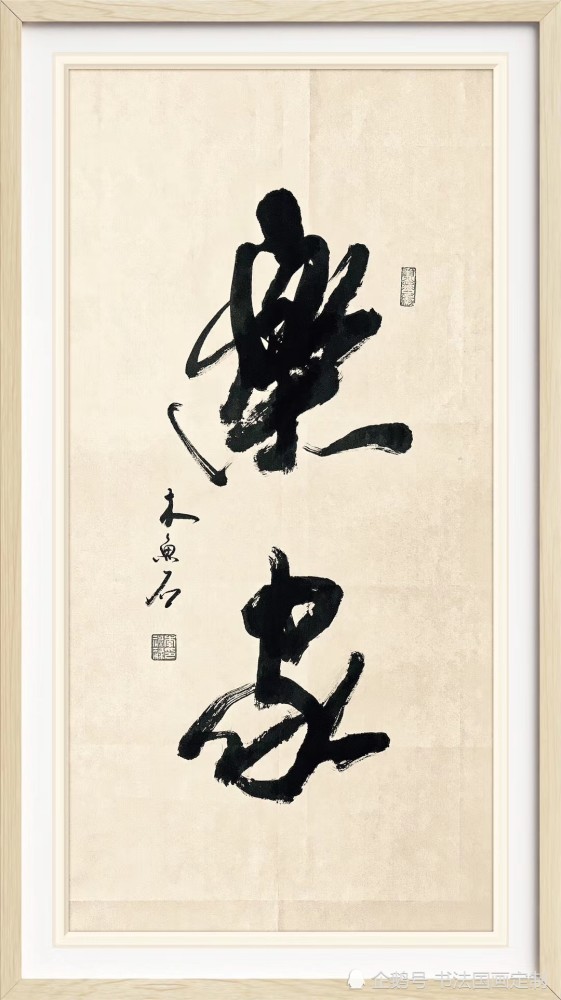 樂家
木魚石
企鹅号 书法国画定制